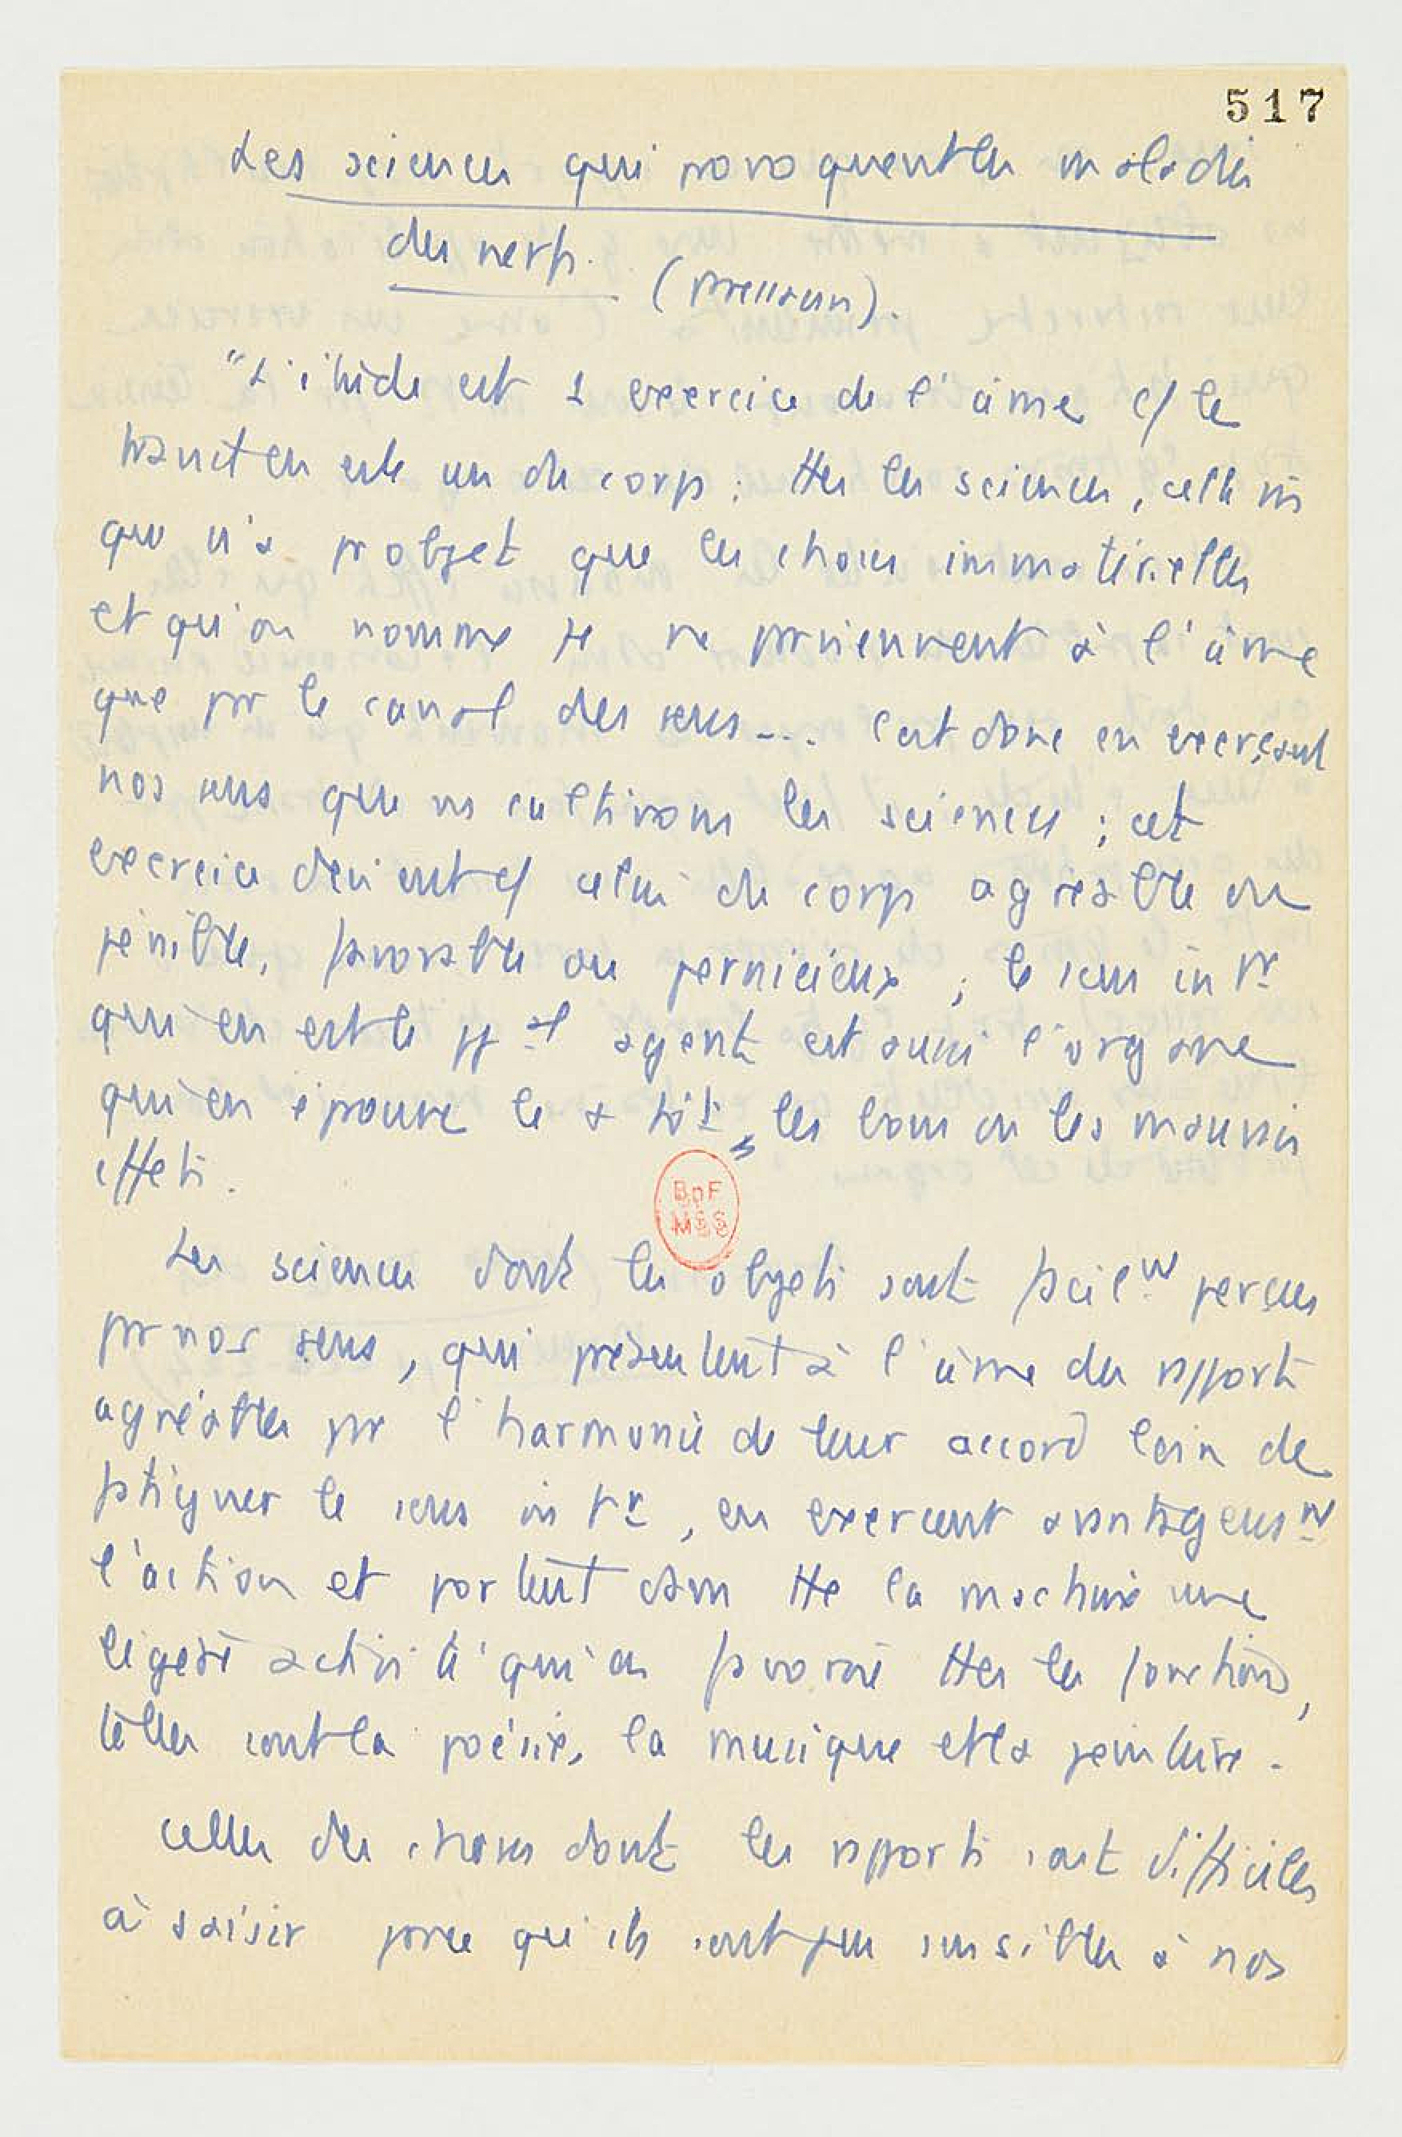 517
Les sciences qui provoquent les maladies
des nerfs. (Pressavin).
"L'étude est 1 exercice de l'âme c/ le
travail en est un du corps : ttes les sciences, celle ms
qui n'a pr objet que les choses immatérielles
et qu'on nomme ne parviennent à l'âme
que par le canal des sens... C'est donc en exerçant
nos sens que ns cultivons les sciences ; cet
exercice devient c/ celui du corps agréable ou
pénible, favorable ou pernicieux ; le sens intr
qui en est le ppal agent est aussi l'organe
qui en éprouve le + tôt, les bons ou les mauvais
effets.
BnF
MSS
Les sciences dont les objets sont facilmt perçus
par nos sens, qui présentent à l'âme des rapports
agréables par l'harmonie de leur accord loin de
fatiguer le sens intr, en exercent avantageusmt
l'action et portent dans tte la machine une
légère activité qui en favorise ttes les fonctions,
telles sont la poésie, la musique et la peinture.
Celles des choses dont les rapports sont difficiles
à saisir parce qu'ils sont peu sensibles à nos